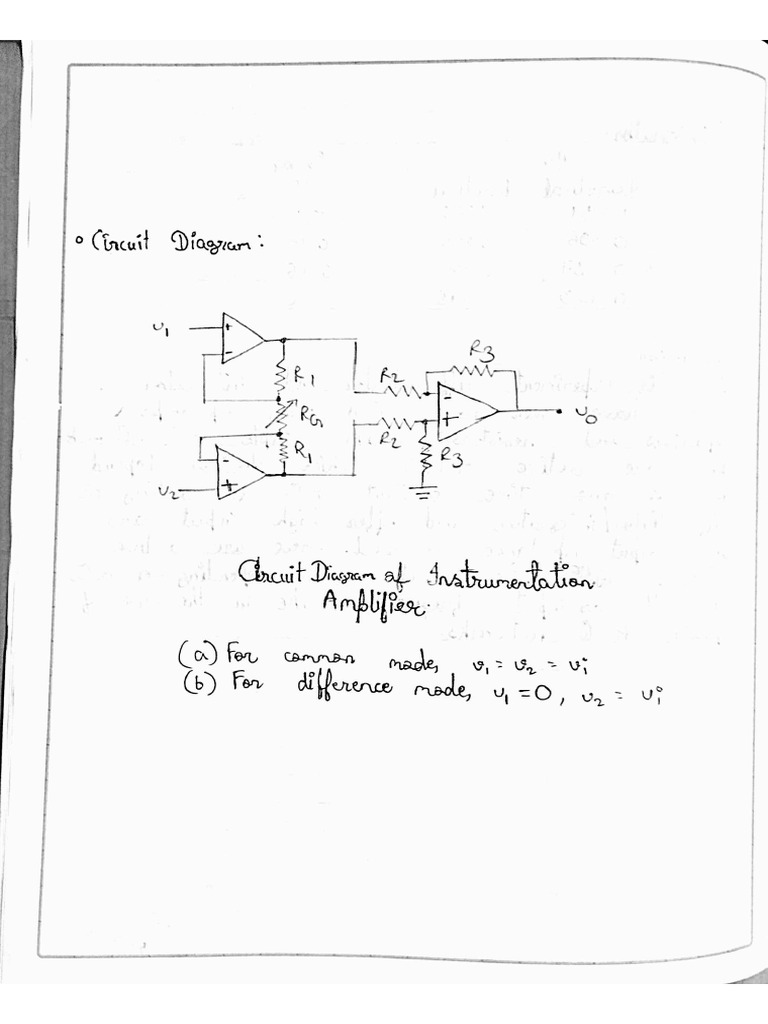 o Circuit Diagram:
υ1
+
-
R1
RG
R1
-
+
υ2
R2
R2
R3
-
+
R3
υo
Circuit Diagram of Instrumentation
Amplifier.
(a) For common mode, υ1 = υ2 = υi
(b) For difference mode, υ1 = 0, υ2 = υi